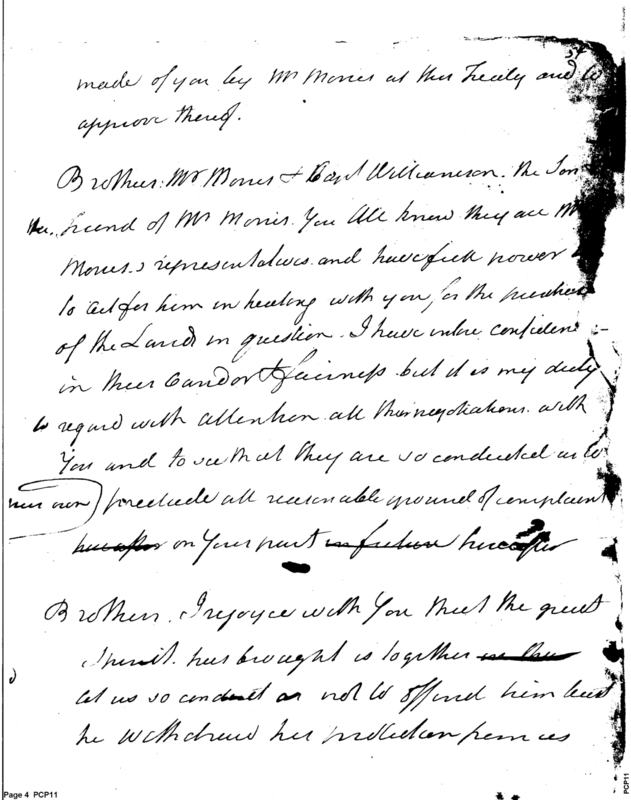 54
made of you by Mr Morris at this Treaty and to
approve thereof.
Brothers: Mr Morris & Capt Williamson. the Son
the. friend of Mr Morris. You All know they are Mr
Morris,s representatives. and have full power
to act for him in treating with you, for the purchase
of the Lands in question. I have intire confidence
in their Candor & fairness but it is my duty
to regard with attention all their negotiations. with
You and to see that they are so conducted as to
preclude all reasonable ground of complaint
hereafter on Your part in future hereafter
Brothers. I rejoyce with You that the great
Spirit. has brought us together in this
let us so conduct as not to offend him least
he withdraw his protection from us
Page 4 PCP11
PCP11